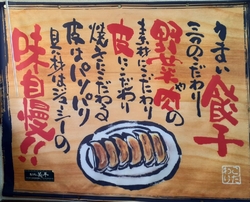 うまい餃子
三つのこだわり
野菜や肉の
素材にこだわり
皮にこだわり
焼きにこだわる
皮はパリパリ
具材はジューシーの
味自慢!!
こだわり